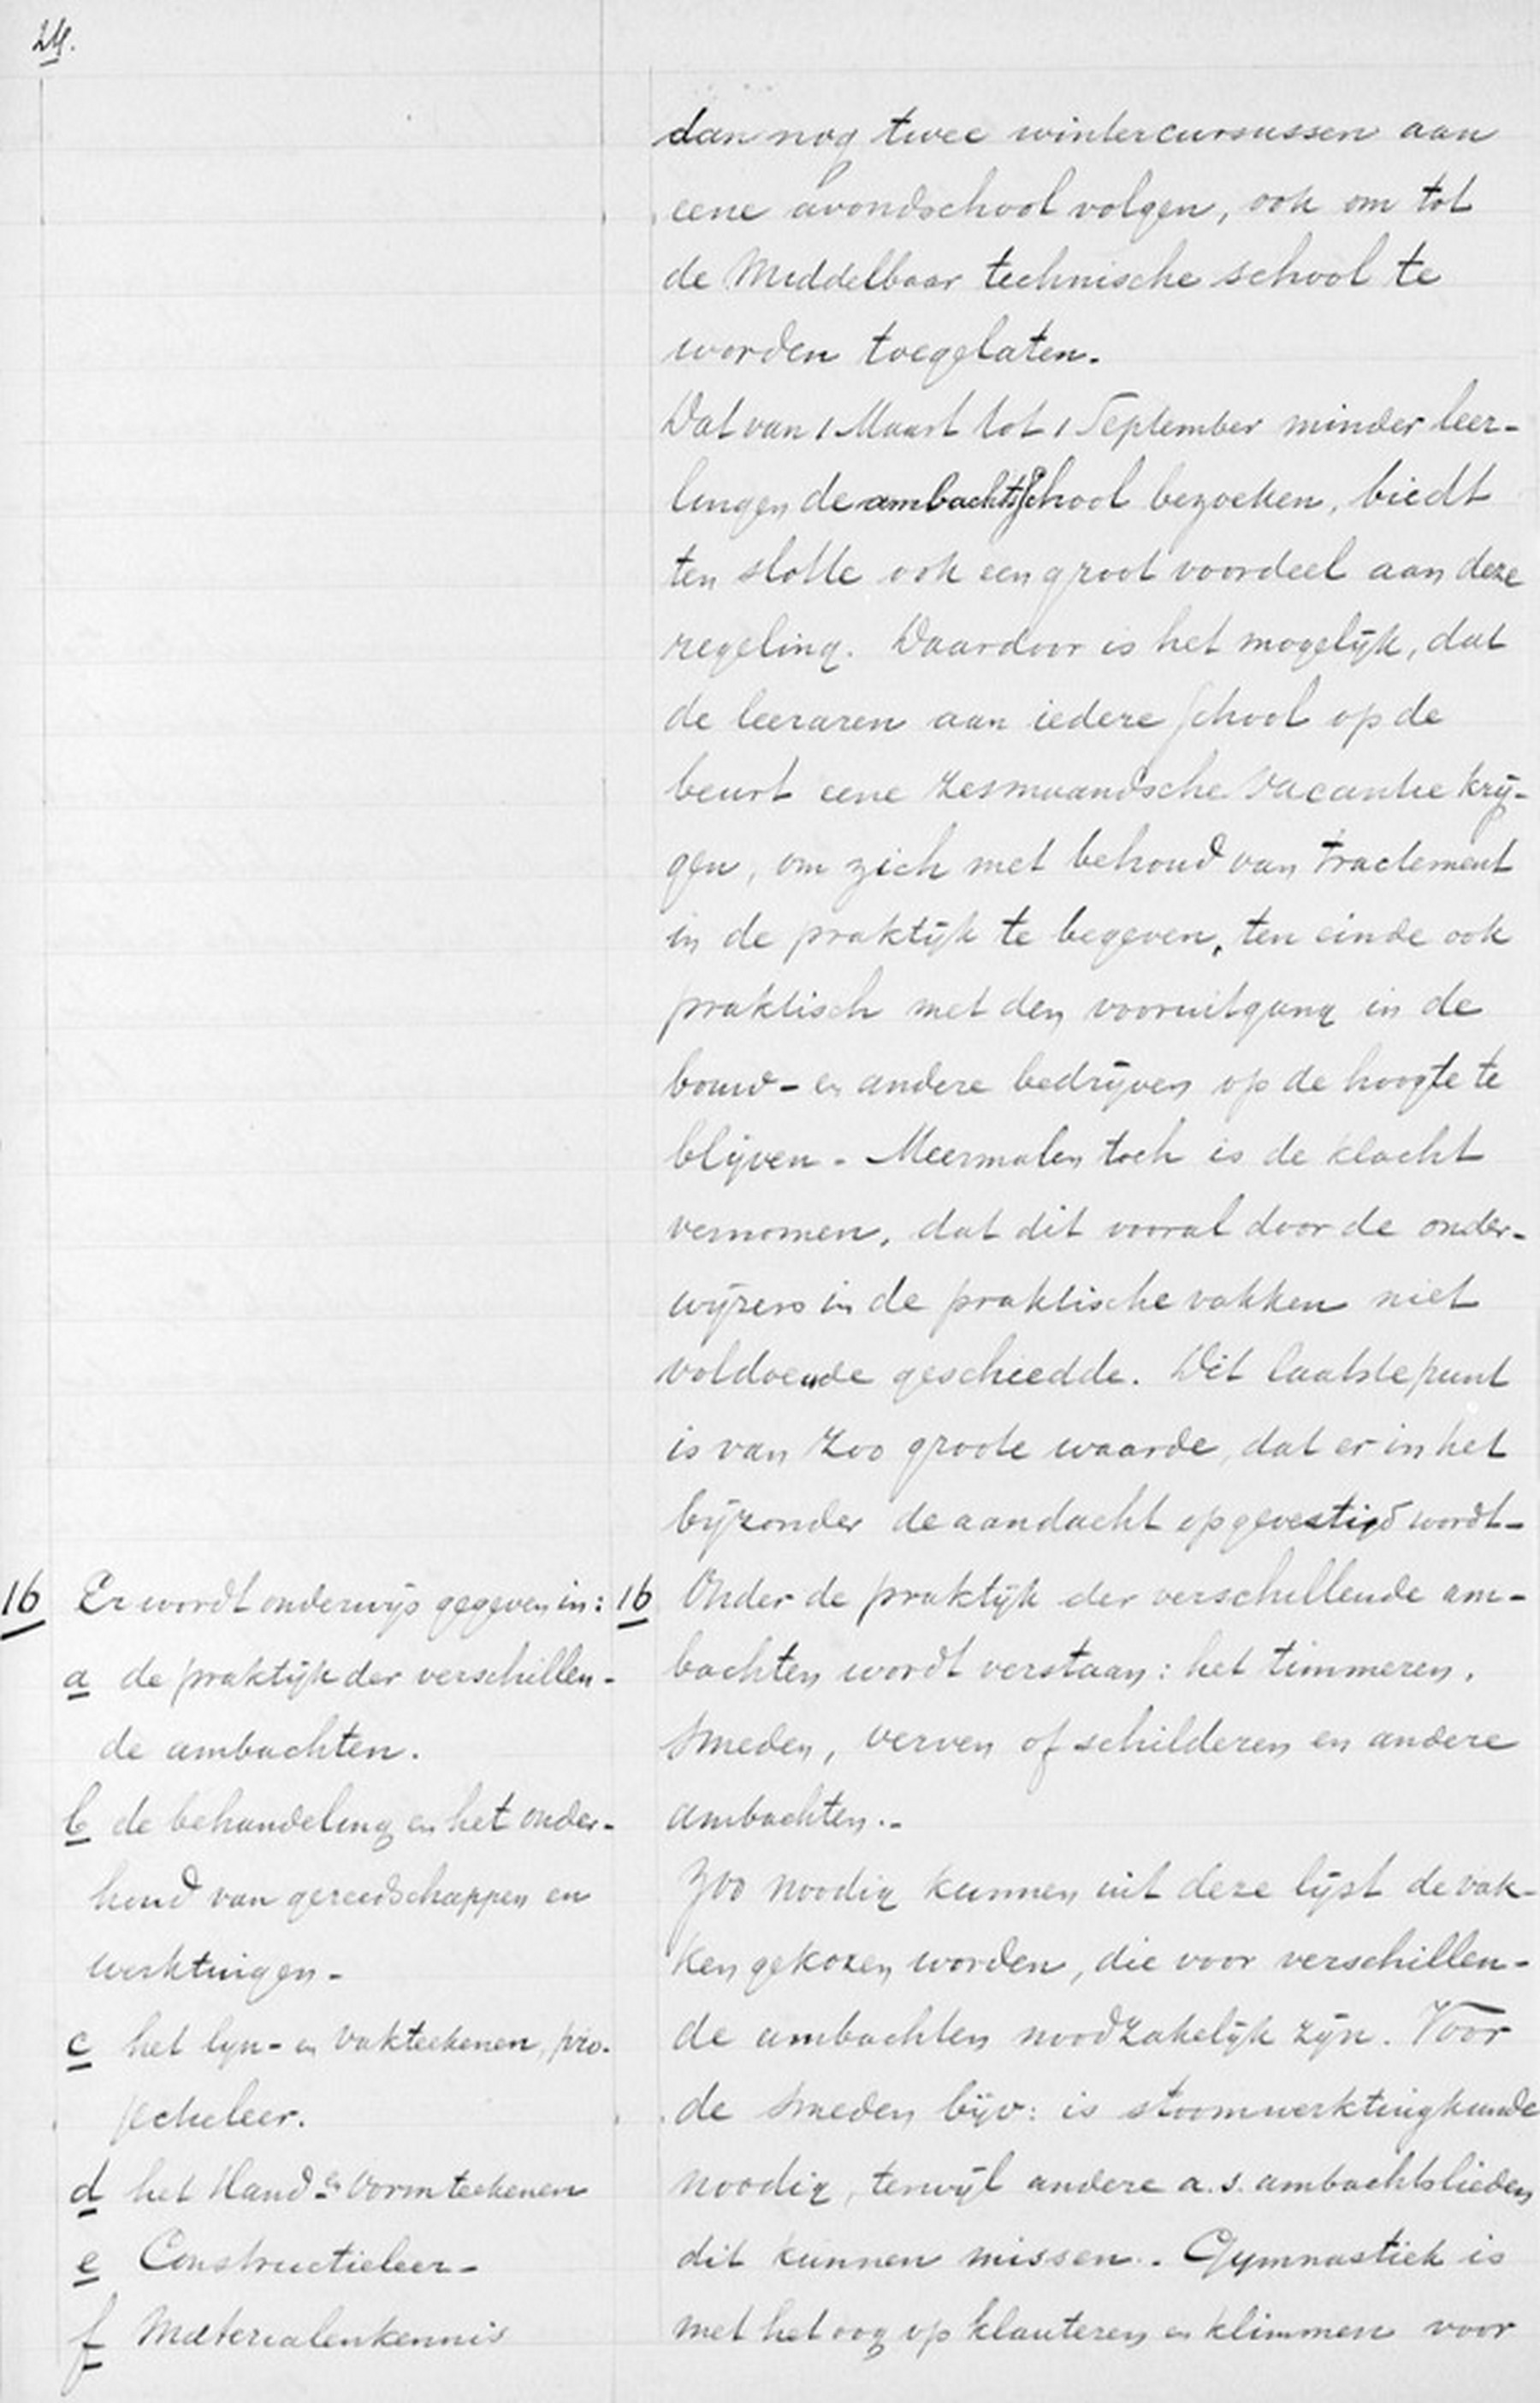 24.
dan nog twee wintercursussen aan
eene avondschool volgen, ook om tot
de Middelbaar technische school te
worden toegelaten.
Dat van 1 Maart tot 1 September minder leer-
lingen de ambachtsschool bezoeken, biedt
ten slotte ook een groot voordeel aan deze
regeling. Daardoor is het mogelijk, dat
de leeraren aan iedere school op de
beurt eene zesmaandsche vacantie krij-
gen, om zich met behoud van tractement
in de praktijk te begeven, ten einde ook
praktisch met den vooruitgang in de
bouw- en andere bedrijven op de hoogte te
blijven. Meermalen toch is de klacht
vernomen, dat dit vooral door de onder-
wijzers in de praktische vakken niet
voldoende geschiedde. Dit laatste punt
is van zoo groote waarde, dat er in het
bijzonder de aandacht op gevestigd wordt.
16 Er wordt onderwijs gegeven in:
a de praktijk der verschillen-
de ambachten.
b de behandeling en het onder-
houd van gereedschappen en
werktuigen.
c het lijn- en vakteekenen, pro-
jectieleer.
d het Hand- en vormteekenen
e Constructieleer
f Materialenkennis
16 Onder de praktijk der verschillende am-
bachten wordt verstaan: het timmeren,
smeden, verven of schilderen en andere
ambachten.
Zoo noodig kunnen uit deze lijst de vak-
ken gekozen worden, die voor verschillen-
de ambachten noodzakelijk zijn. Voor
de smeden bijv: is stoomwerktuigkunde
noodig, terwijl andere a.s. ambachtslieden
dit kunnen missen. Gymnastiek is
met het oog op klauteren en klimmen voor